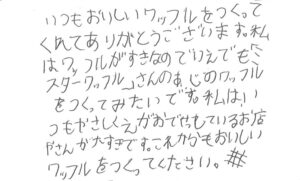 いつもおいしいワッフルをつくって
くれてありがとうございます。私
はワッフルがすきなのでいえでも、「ミ
スターワッフル」さんのあじのワッフル
をつくってみたいです。私は、い
つもやさしくえがおでやっているお店
やさんが大すきです。これからもおいしい
ワッフルをつくってください。